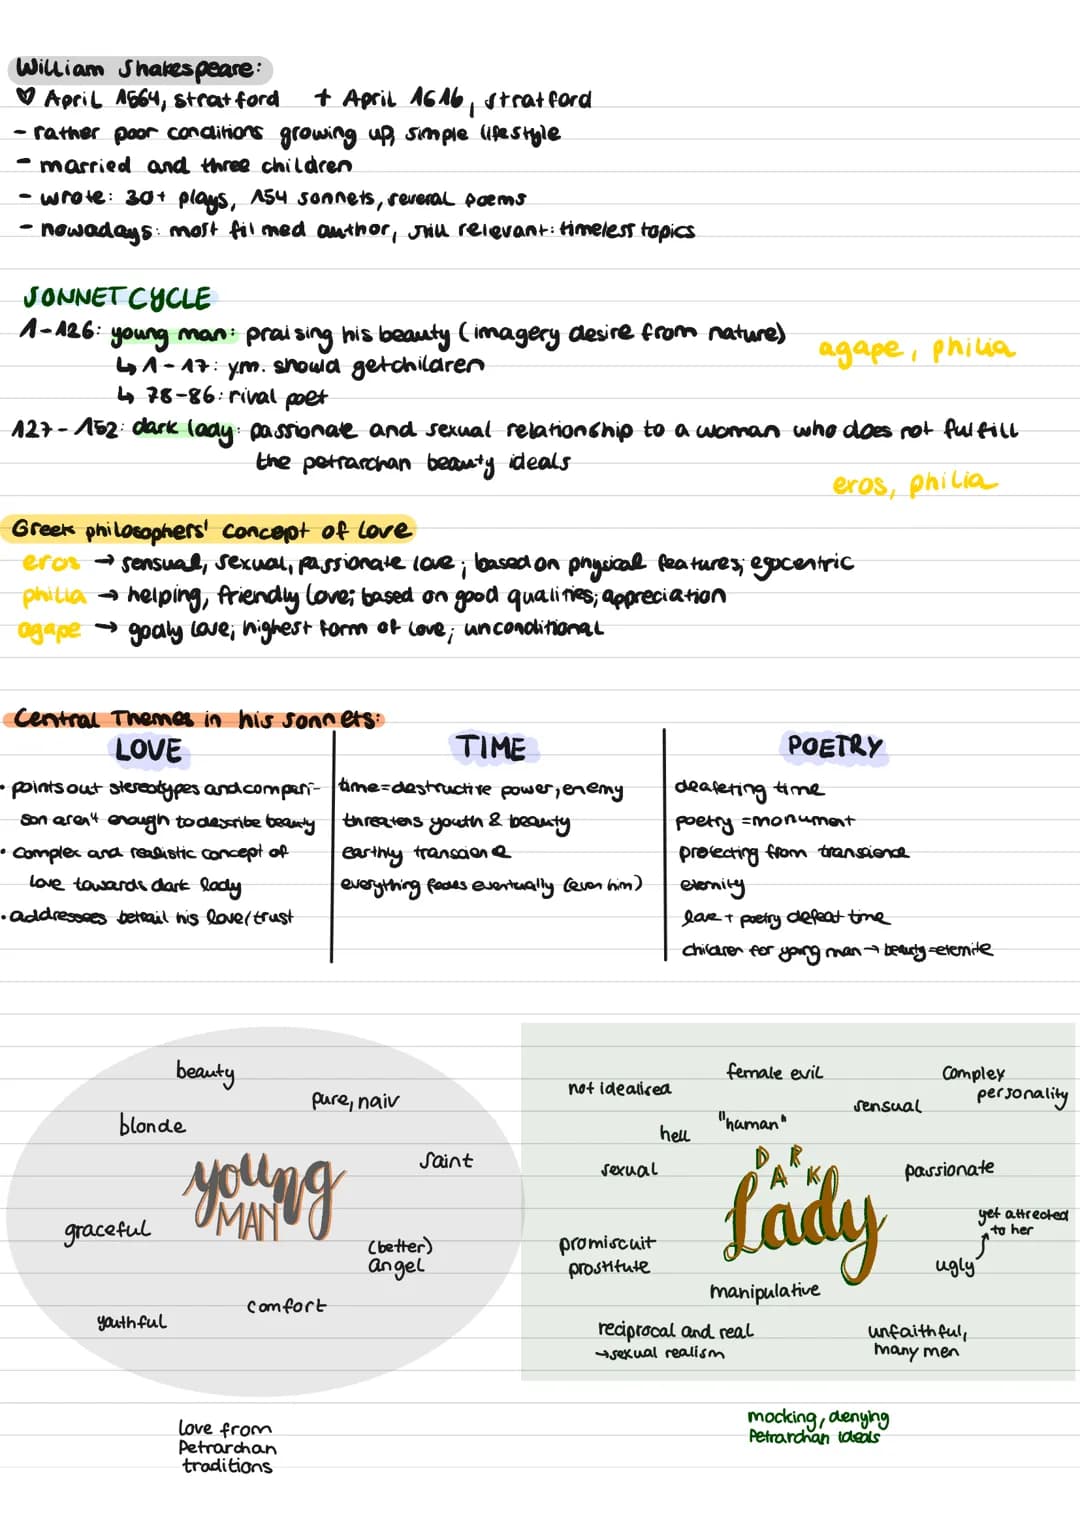 William Shakespeare:
♡ April 1564, stratford † April 1616, stratford
- rather poor conditions growing up, simple lifestyle
- married and three children
- wrote: 30+ plays, 154 sonnets, several poems
- nowadays: most filmed author, still relevant: timeless topics
SONNET CYCLE
1-126: young man: praising his beauty (imagery desire from nature)
agape, philia
↳ 1-17: y.m. should get children
↳ 78-86: rival poet
127-152: dark lady: passionate and sexual relationship to a woman who does not fulfill
the petrarchan beauty ideals
eros, philia
Greek philosophers' concept of love
eros → sensual, sexual, passionate love; based on physical features; egocentric
philia → helping, friendly love; based on good qualities; appreciation
agape → godly love; highest form of love; unconditional
Central Themes in his sonnets:
LOVE
• points out stereotypes and compari-
son aren't enough to describe beauty
• complex and realistic concept of
love towards dark lady
• addressees betrail his love/trust
TIME
time=destructive power, enemy
threatens youth & beauty
earthly transcience
everything fades eventually (even him)
POETRY
deafeting time
poetry = monument
protecting from transience
eternity
love + poetry defeat time
children for young man → beauty=eternite
beauty
pure, naiv
blonde
saint
young
MAN
graceful
(better)
angel
comfort
youthful
love from
Petrarchan
traditions
female evil
complex
personality
not idealised
sensual
"human"
hell
DARK
Lady
sexual
passionate
yet attracted
to her
promiscuit
prostitute
ugly
manipulative
reciprocal and real
→sexual realism
unfaithful,
many men
mocking, denying
Petrarchan ideals